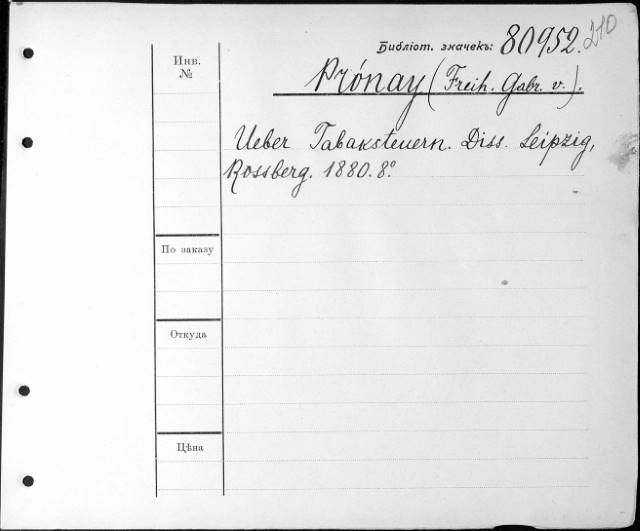 Библіот. значекъ: 80952. 210
Инв.
№
Prónay (Freih. Gabr. v.).
Ueber Tabaksteuern. Diss. Leipzig,
Rossberg. 1880. 8°.
По заказу
Откуда
Цѣна